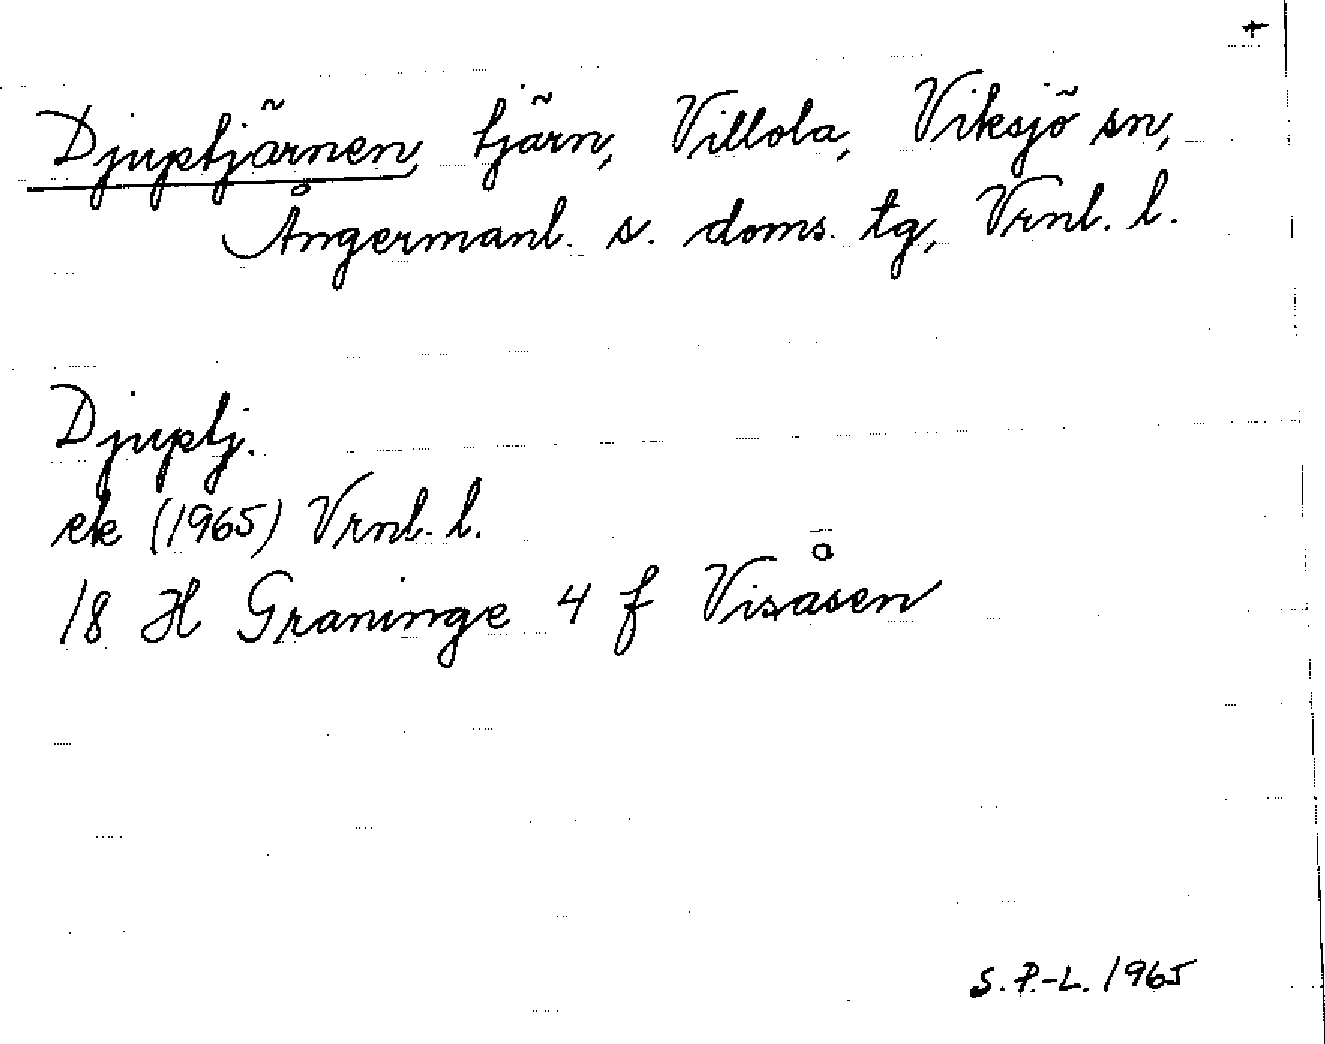 +
Djuptjärnen, tjärn, Villola, Viksjö sn,
Ångermanl. s. doms. tg, Vrnl. l.
Djuptj.
ek (1965) Vrnl. l.
18 H Graninge 4 f Visåsen
S. P.-L. 1965